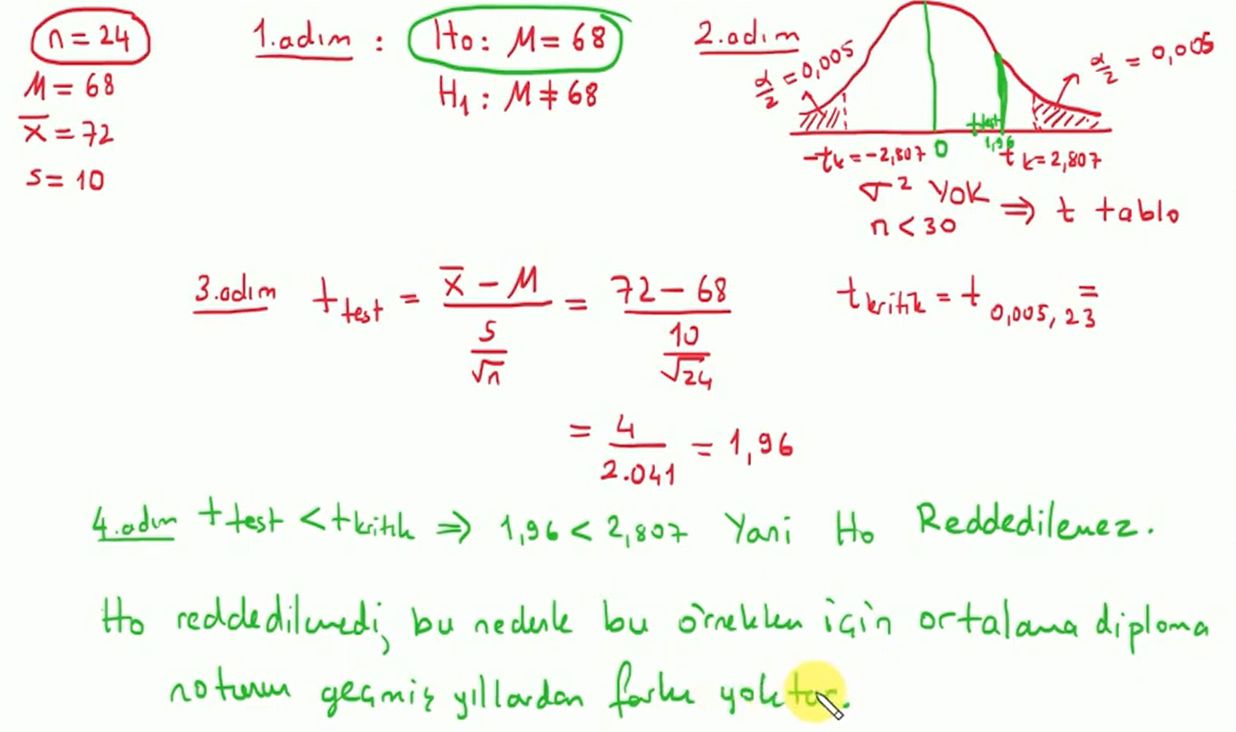 n = 24
μ = 68
x̄ = 72
s = 10
1.adım : H₀ : μ = 68
H₁ : μ ≠ 68
2.adım
α/2 = 0,005
α/2 = 0,005
-tₖ = -2,807 0 t test 1,96 tₖ = 2,807
σ² YOK
n < 30 ⇒ t tablo
3.adım t test = (x̄ - μ) / (s/√n) = (72 - 68) / (10/√24)
t kritik = t 0,005, 23 =
= 4 / 2.041 = 1,96
4.adım t test < t kritik ⇒ 1,96 < 2,807 Yani H₀ Reddedilemez.
H₀ reddedilmedi, bu nedenle bu örneklem için ortalama diploma
notunun geçmiş yıllardan farkı yoktur.